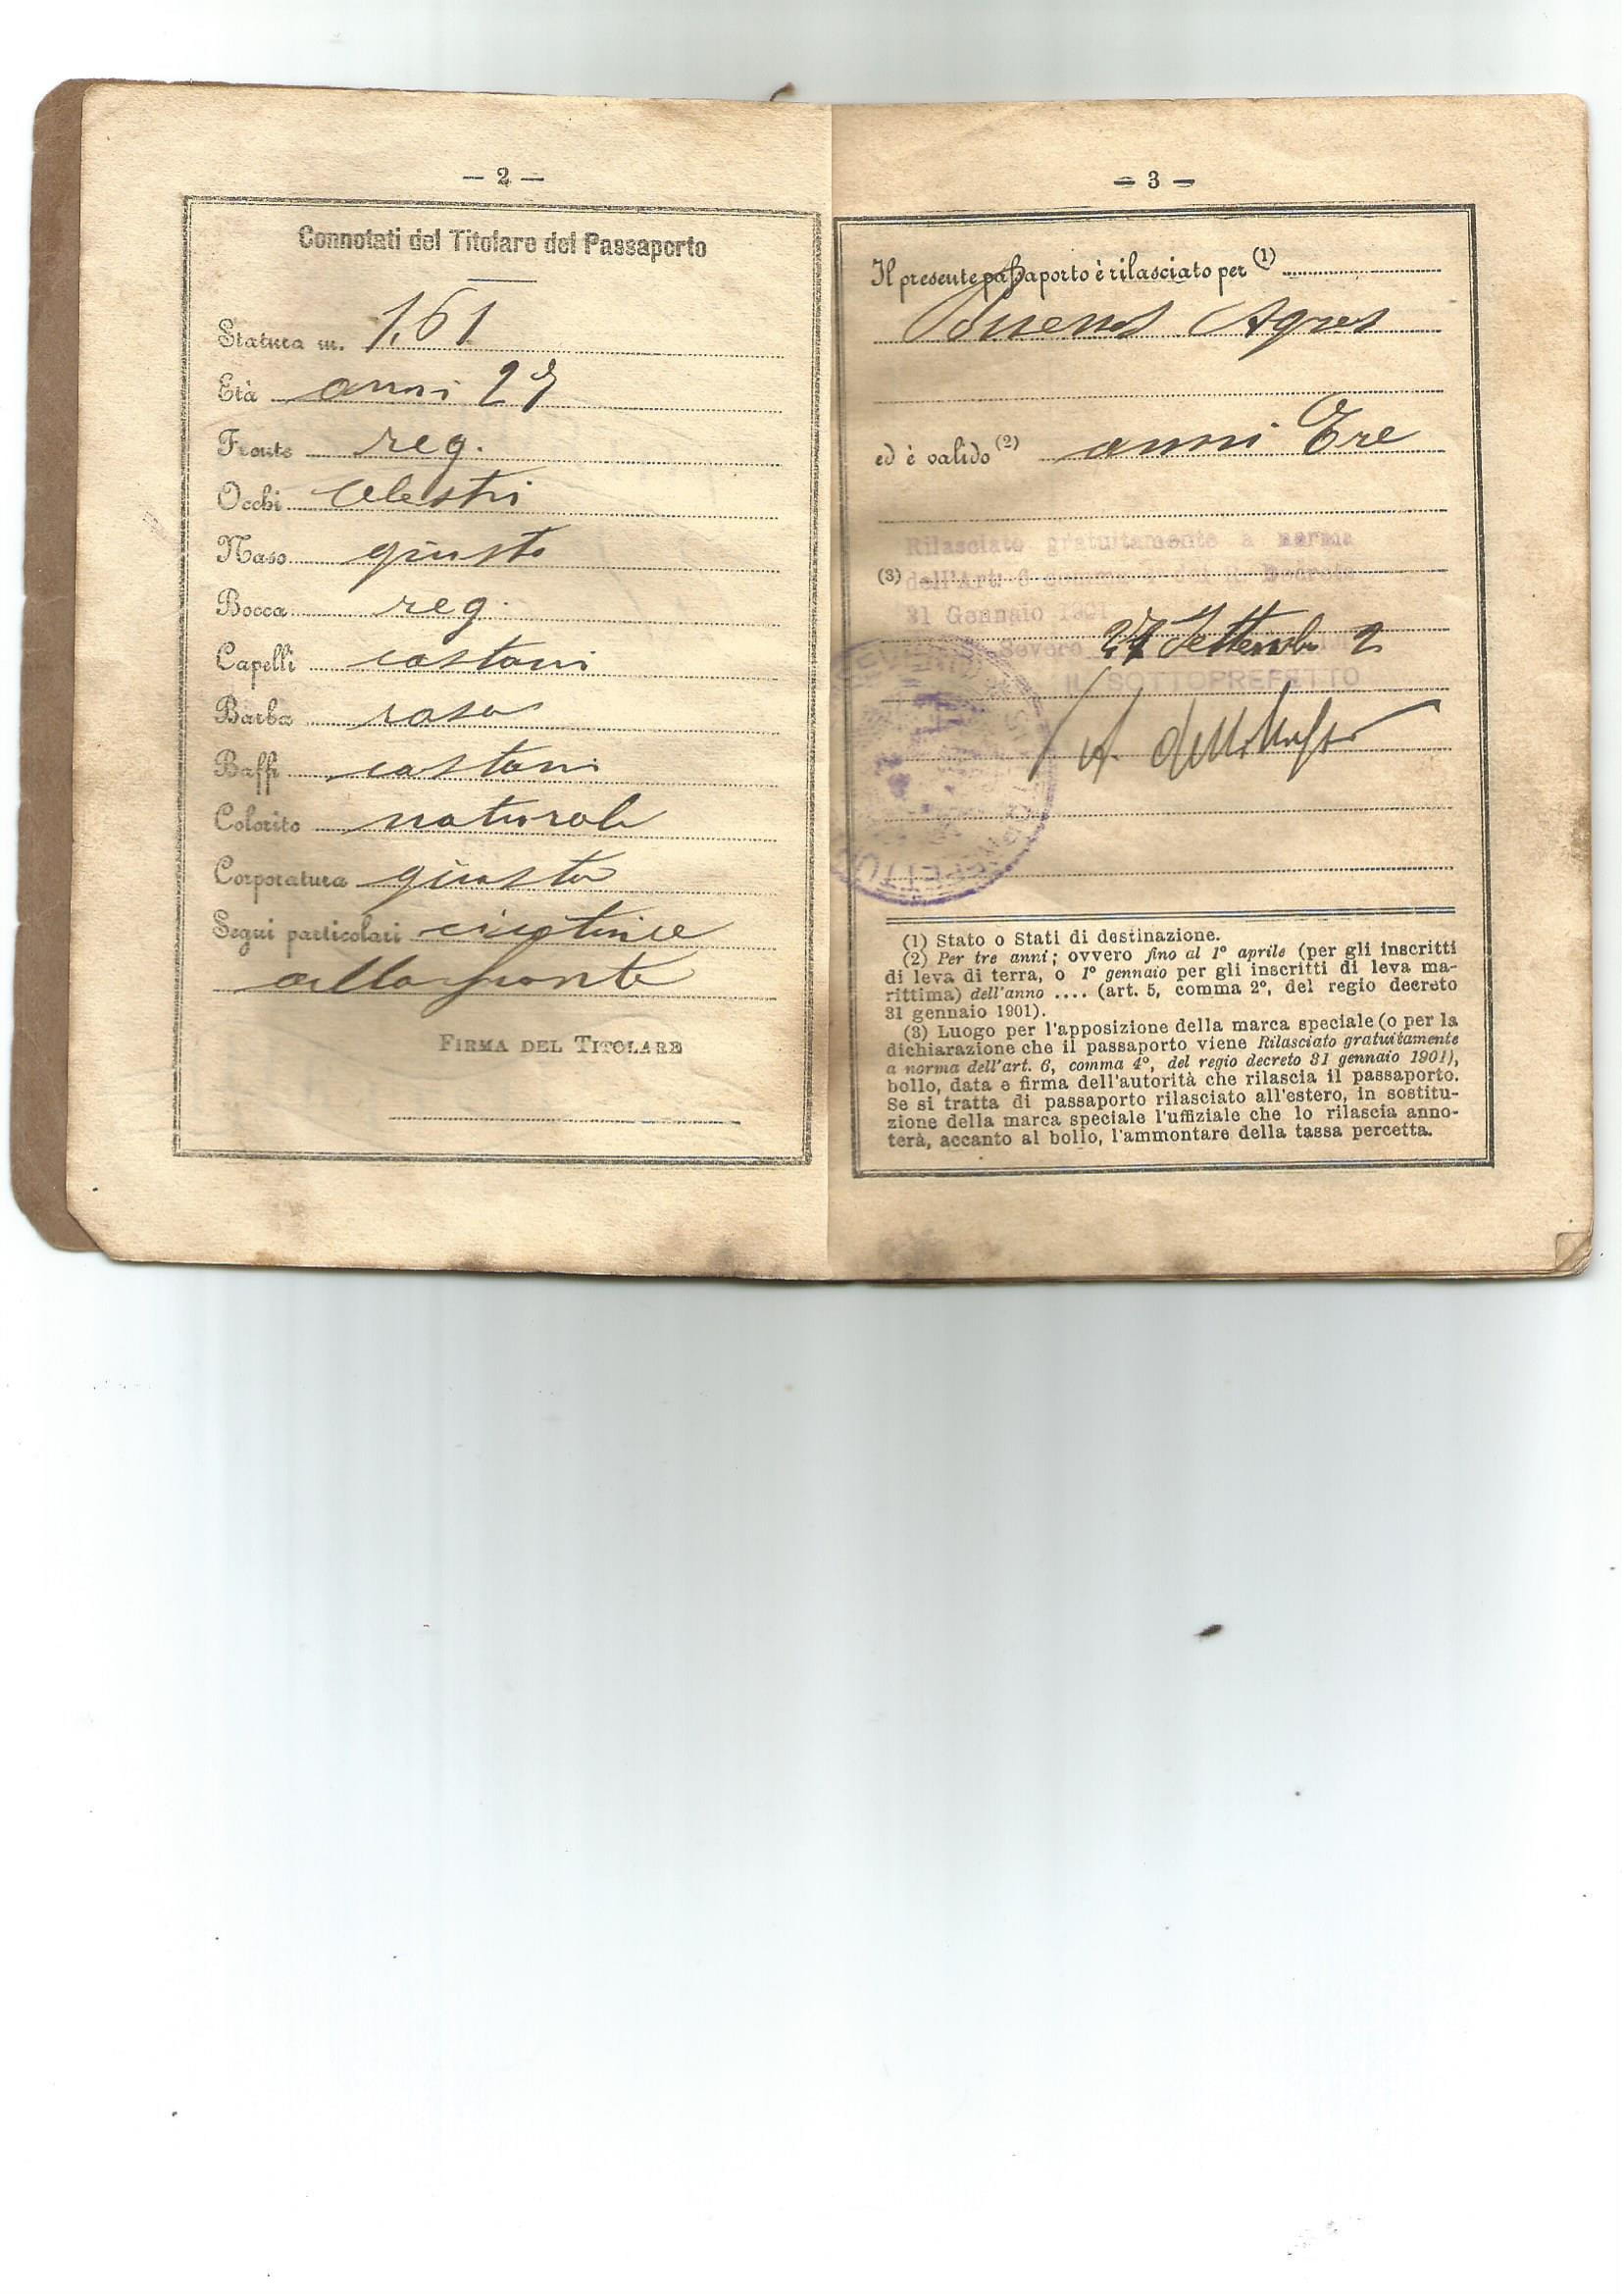 — 2 —
Connotati del Titolare del Passaporto
Statura m. 1,61
Età anni 27
Fronte reg.
Occhi celestri
Naso giusto
Bocca reg.
Capelli castani
Barba rasa
Baffi castani
Colorito naturale
Corporatura giusta
Segni particolari cicatrice
alla fronte
FIRMA DEL TITOLARE
— 3 —
Il presente passaporto è rilasciato per (1)
Buenos Ayres
ed è valido (2) anni Tre
Rilasciato gratuitamente a norma
(3) dell'Art. 6 comma 4 del R. Decreto
31 Gennaio 1901
Severo 27 Settembre
IL SOTTOPREFETTO
(1) Stato o Stati di destinazione.
(2) Per tre anni; ovvero fino al 1° aprile (per gli inscritti
di leva di terra, o 1° gennaio per gli inscritti di leva ma-
rittima) dell'anno .... (art. 5, comma 2°, del regio decreto
31 gennaio 1901).
(3) Luogo per l'apposizione della marca speciale (o per la
dichiarazione che il passaporto viene Rilasciato gratuitamente
a norma dell'art. 6, comma 4°, del regio decreto 31 gennaio 1901),
bollo, data e firma dell'autorità che rilascia il passaporto.
Se si tratta di passaporto rilasciato all'estero, in sostitu-
zione della marca speciale l'uffiziale che lo rilascia anno-
terà, accanto al bollo, l'ammontare della tassa percetta.